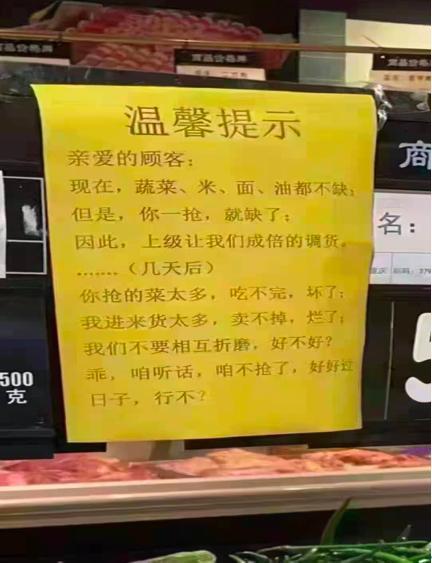 温馨提示
亲爱的顾客：
现在，蔬菜、米、面、油都不缺；
但是，你一抢，就缺了；
因此，上级让我们成倍的调货。
.......（几天后）
你抢的菜太多，吃不完，坏了；
我进米货太多，卖不掉，烂了；
我们不要相互折磨，好不好？
乖，咱听话，咱不抢了，好好过
日子，行不？
商
名：
500
克
5